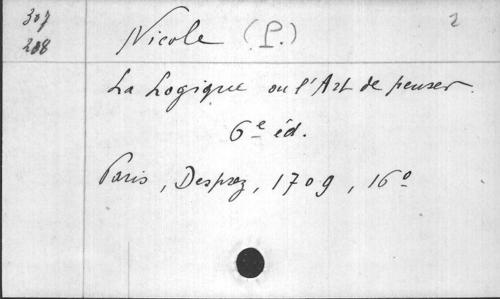 307
208
Nicole (P.)
2
La Logique ou l'Art de penser.
6e éd.
Paris, Desprez, 1709, 16o